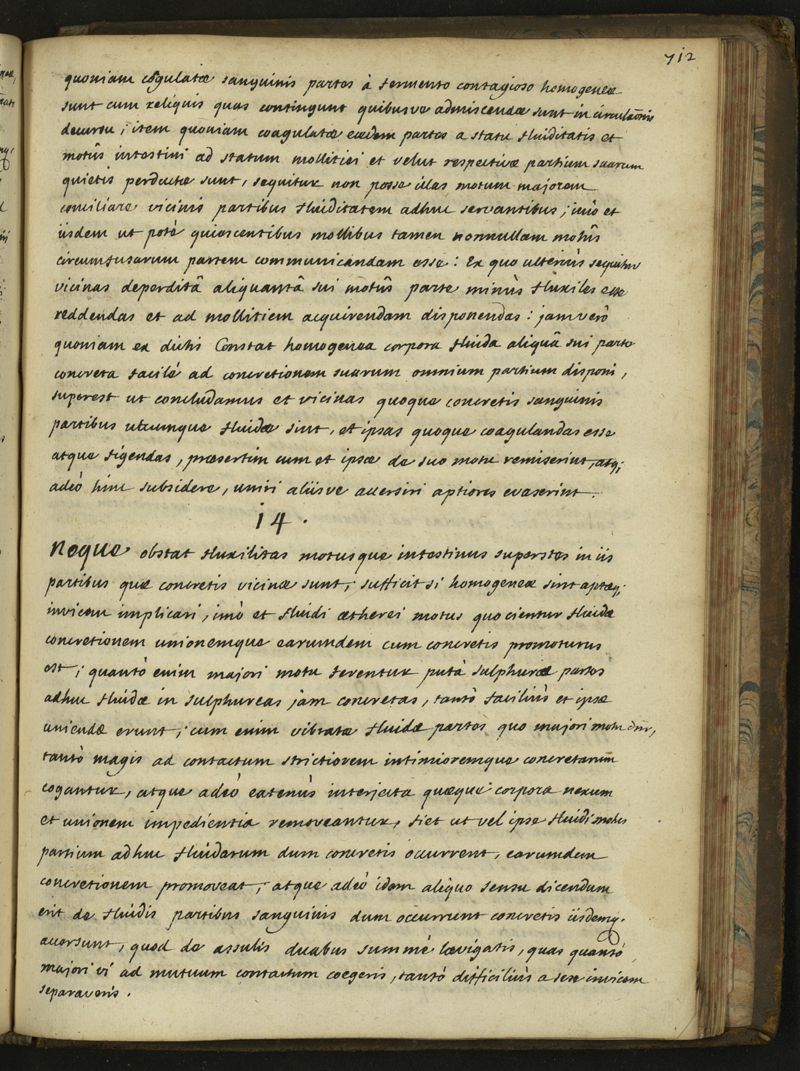 712
quoniam cōgulatæ sanguinis partes à fermento contagioso homogeneæ
sunt cum reliquis quas contingunt quibusve admiscendæ sunt in circulāonis
decursu; item quoniam coagulatæ eædem partes a statu fluiditatis et
motûs intestini ad statum mollitiei et velut respectivæ partium suarum
quietis perductæ sunt, sequitur non posse illas motum majorem
conciliare vicinis partibus fluiditatem adhuc servantibus; imò et
iisdem ut potè quiescentibus mollibus tamen nonnullam motûs
circumfusarum partem communicandam esse: Ex quo ulteriùs sequitur
vicinas deperditâ aliquantâ sui motûs parte minùs fluxiles esse
reddendas et ad mollitiem acquirendam disponendas: jam verò
quoniam ex dictis Constat homogenea corpora fluida aliquâ sui parte
concreta facilè ad concretionem suarum omnium partium disponi,
superest ut concludamus et vicinas quoque concretis sanguinis
partibus utcumque fluidæ sint, et ipsas quoque coagulandas esse
atque figendas, præsertim cum et ipsæ de suo motu remiserint, atq;
adeò hinc subsidere, uniri aliisve aversiri aptiores evaserint.
14.
Neque obstat fluxilitas motusque intestinus superstes in iis
partibus quæ concretis vicinæ sunt; sufficit si homogeneæ sint aptæq;
invicem implicari, imò et fluidi ætherei motus quo cientur fluidæ
concretionem unionemque earumdem cum concretis promoturus
est; quantò enim majori motu ferentur putà sulphureæ partes
adhuc fluidæ in sulphureas jam concretas, tantò faciliùs et ipsæ
uniendæ erunt; cum enim vibratæ fluidæ partes quo majori motu
tantò magis ad contactum strictiorem intimioremque concretarum
cogantur, atque adeò eatenùs interjecta quæque corpora nexum
et unionem impedientia removeantur, fiet ut vel ipse fluidi motus
partium adhuc fluidarum dum concretis occurrent, earumdem
concretionem promoveat; atque adeò idem aliquo sensu dicendum
erit de fluidis partibus sanguinis dum occurrunt concretis iisdemq;
aversunt, quod de assulis duabus summè lævigatis, quas quantò
majori vi ad mutuum contactum coegeris, tantò difficiliùs a sese invicem
separaveris.